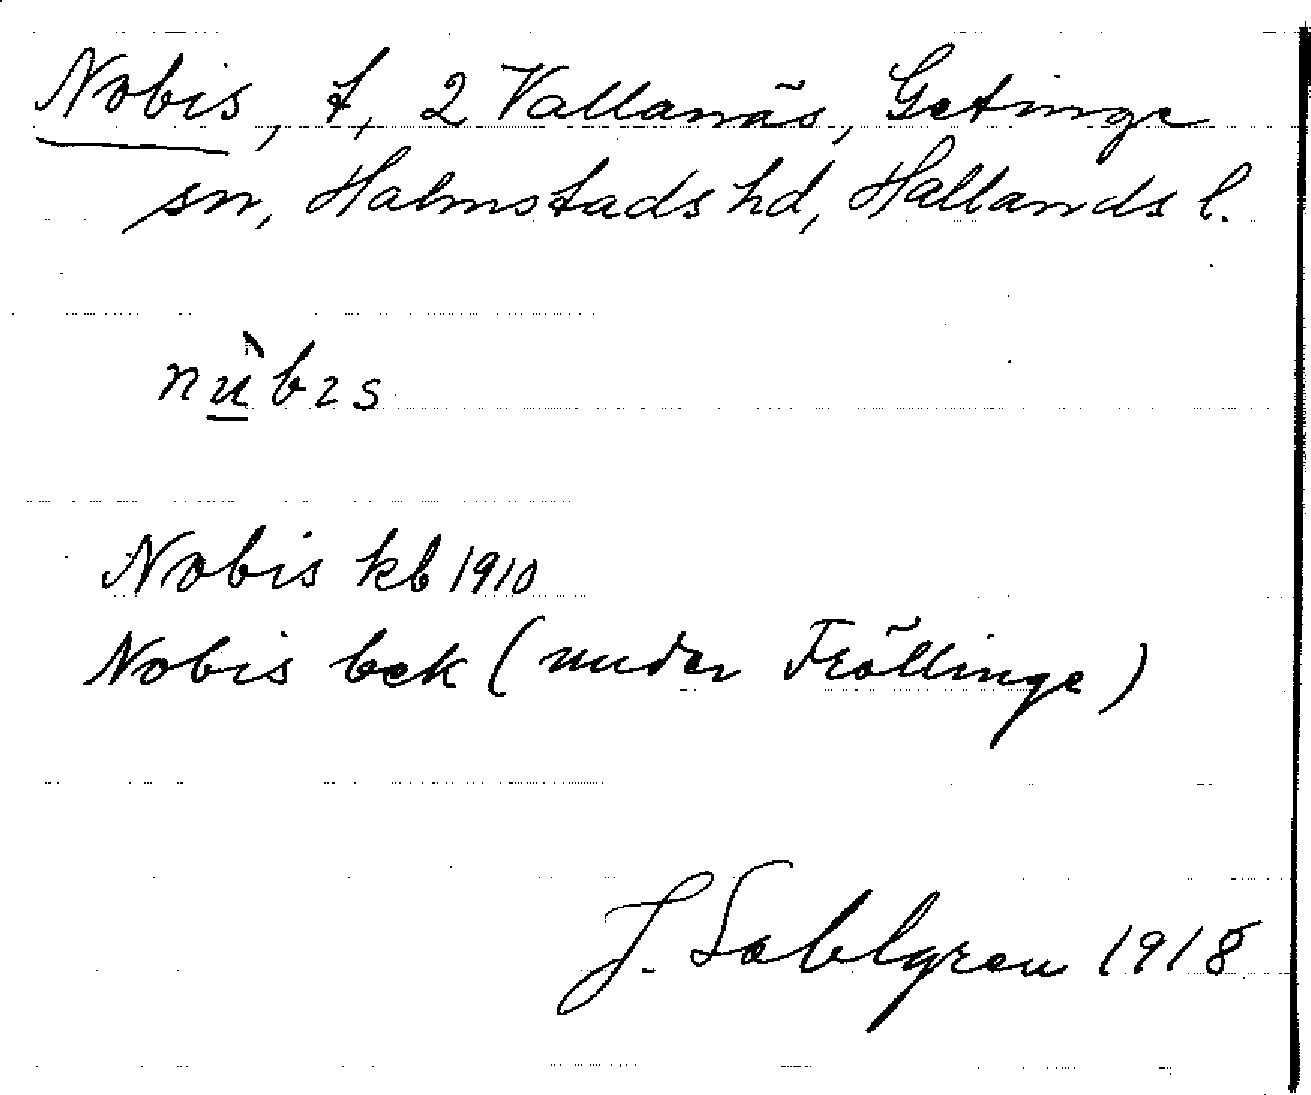 Nobis, t, 2 Vallanäs, Getinge
sn, Halmstads hd, Hallands l.
nù̲bɪs
Nobis kb 1910
Nobis bek (under Fröllinge)
J. Sahlgren 1918